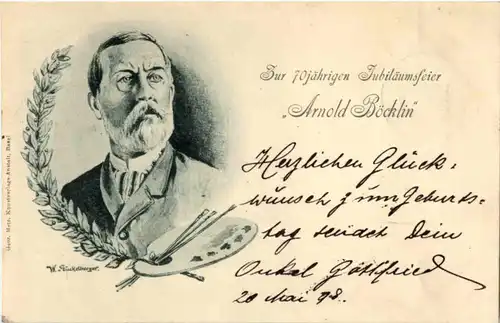 Zur 70jährigen Jubiläumsfeier
„Arnold Böcklin"
Herzlichen Glück-
wunsch zum Geburts-
tag sendet Dein
Onkel Gottfried
20 Mai 98.